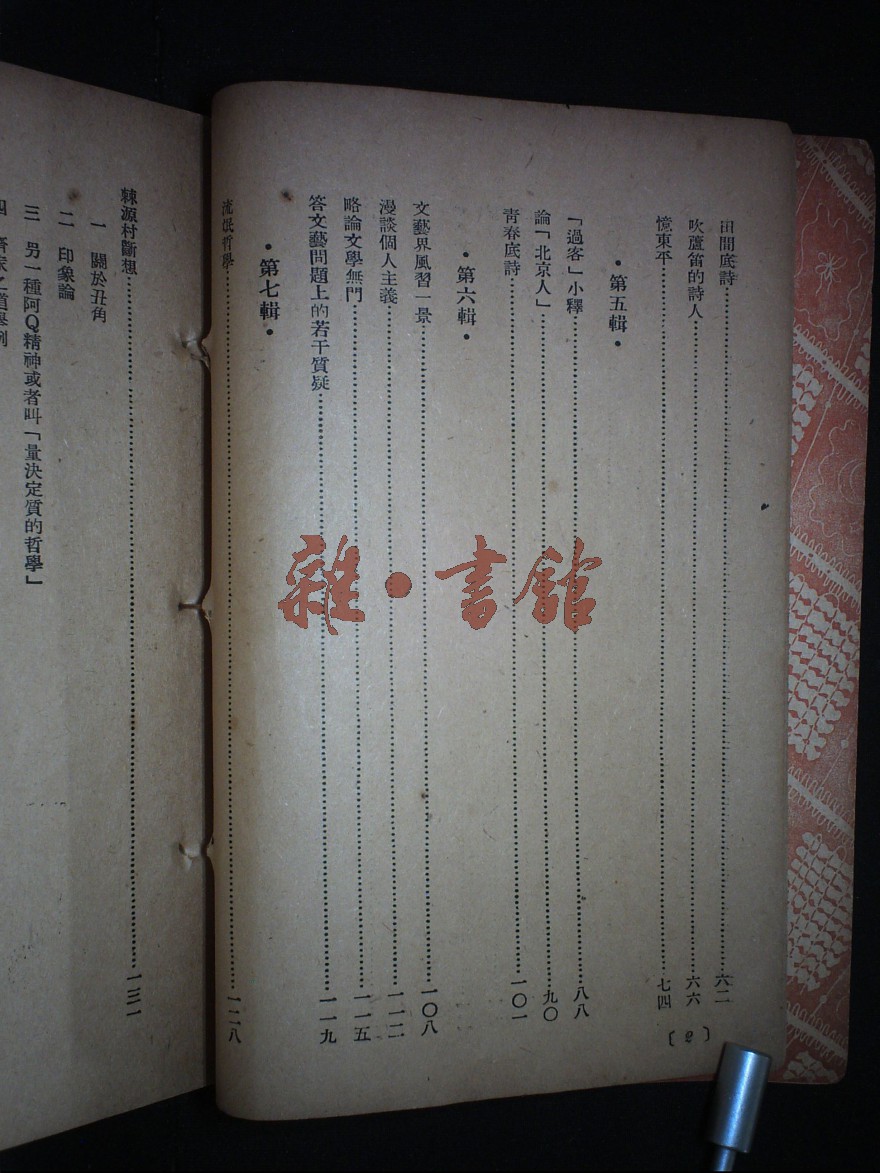 田間底詩……六二
吹蘆笛的詩人……六六
憶東平……七四
•第五輯•
「過客」小釋……八八
論「北京人」……九〇
青春底詩……一〇一
•第六輯•
文藝界風習一景……一〇八
漫談個人主義……一一二
略論文學無門……一一五
答文藝問題上的若干質疑……一一九
•第七輯•
流氓哲學……一二八
〔2〕
棘源村斷想……一三一
一 關於丑角
二 印象論
三 另一種阿Q精神或者叫「量決定質的哲學」
四
之道舉例
雜•書館